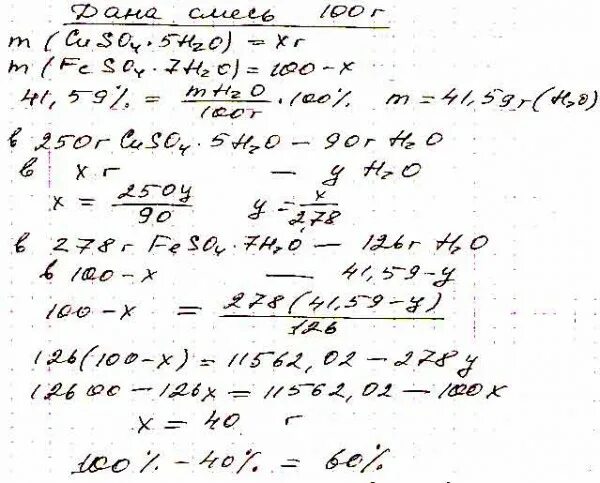 Дана смесь 100 г
m (CuSO₄·5H₂O) = x г
m (FeSO₄·7H₂O) = 100 - x
41,59% = mH₂O / 100г · 100% m = 41,59 г (H₂O)
в 250 г CuSO₄·5H₂O – 90 г H₂O
в x г — y H₂O
x = 250y / 90 y = x / 2,78
в 278 г FeSO₄·7H₂O — 126 г H₂O
в 100 - x — 41,59 - y
100 - x = 278 (41,59 - y) / 126
126 (100 - x) = 11562,02 - 278 y
12600 - 126x = 11562,02 - 100x
x = 40 г
100% - 40% = 60%